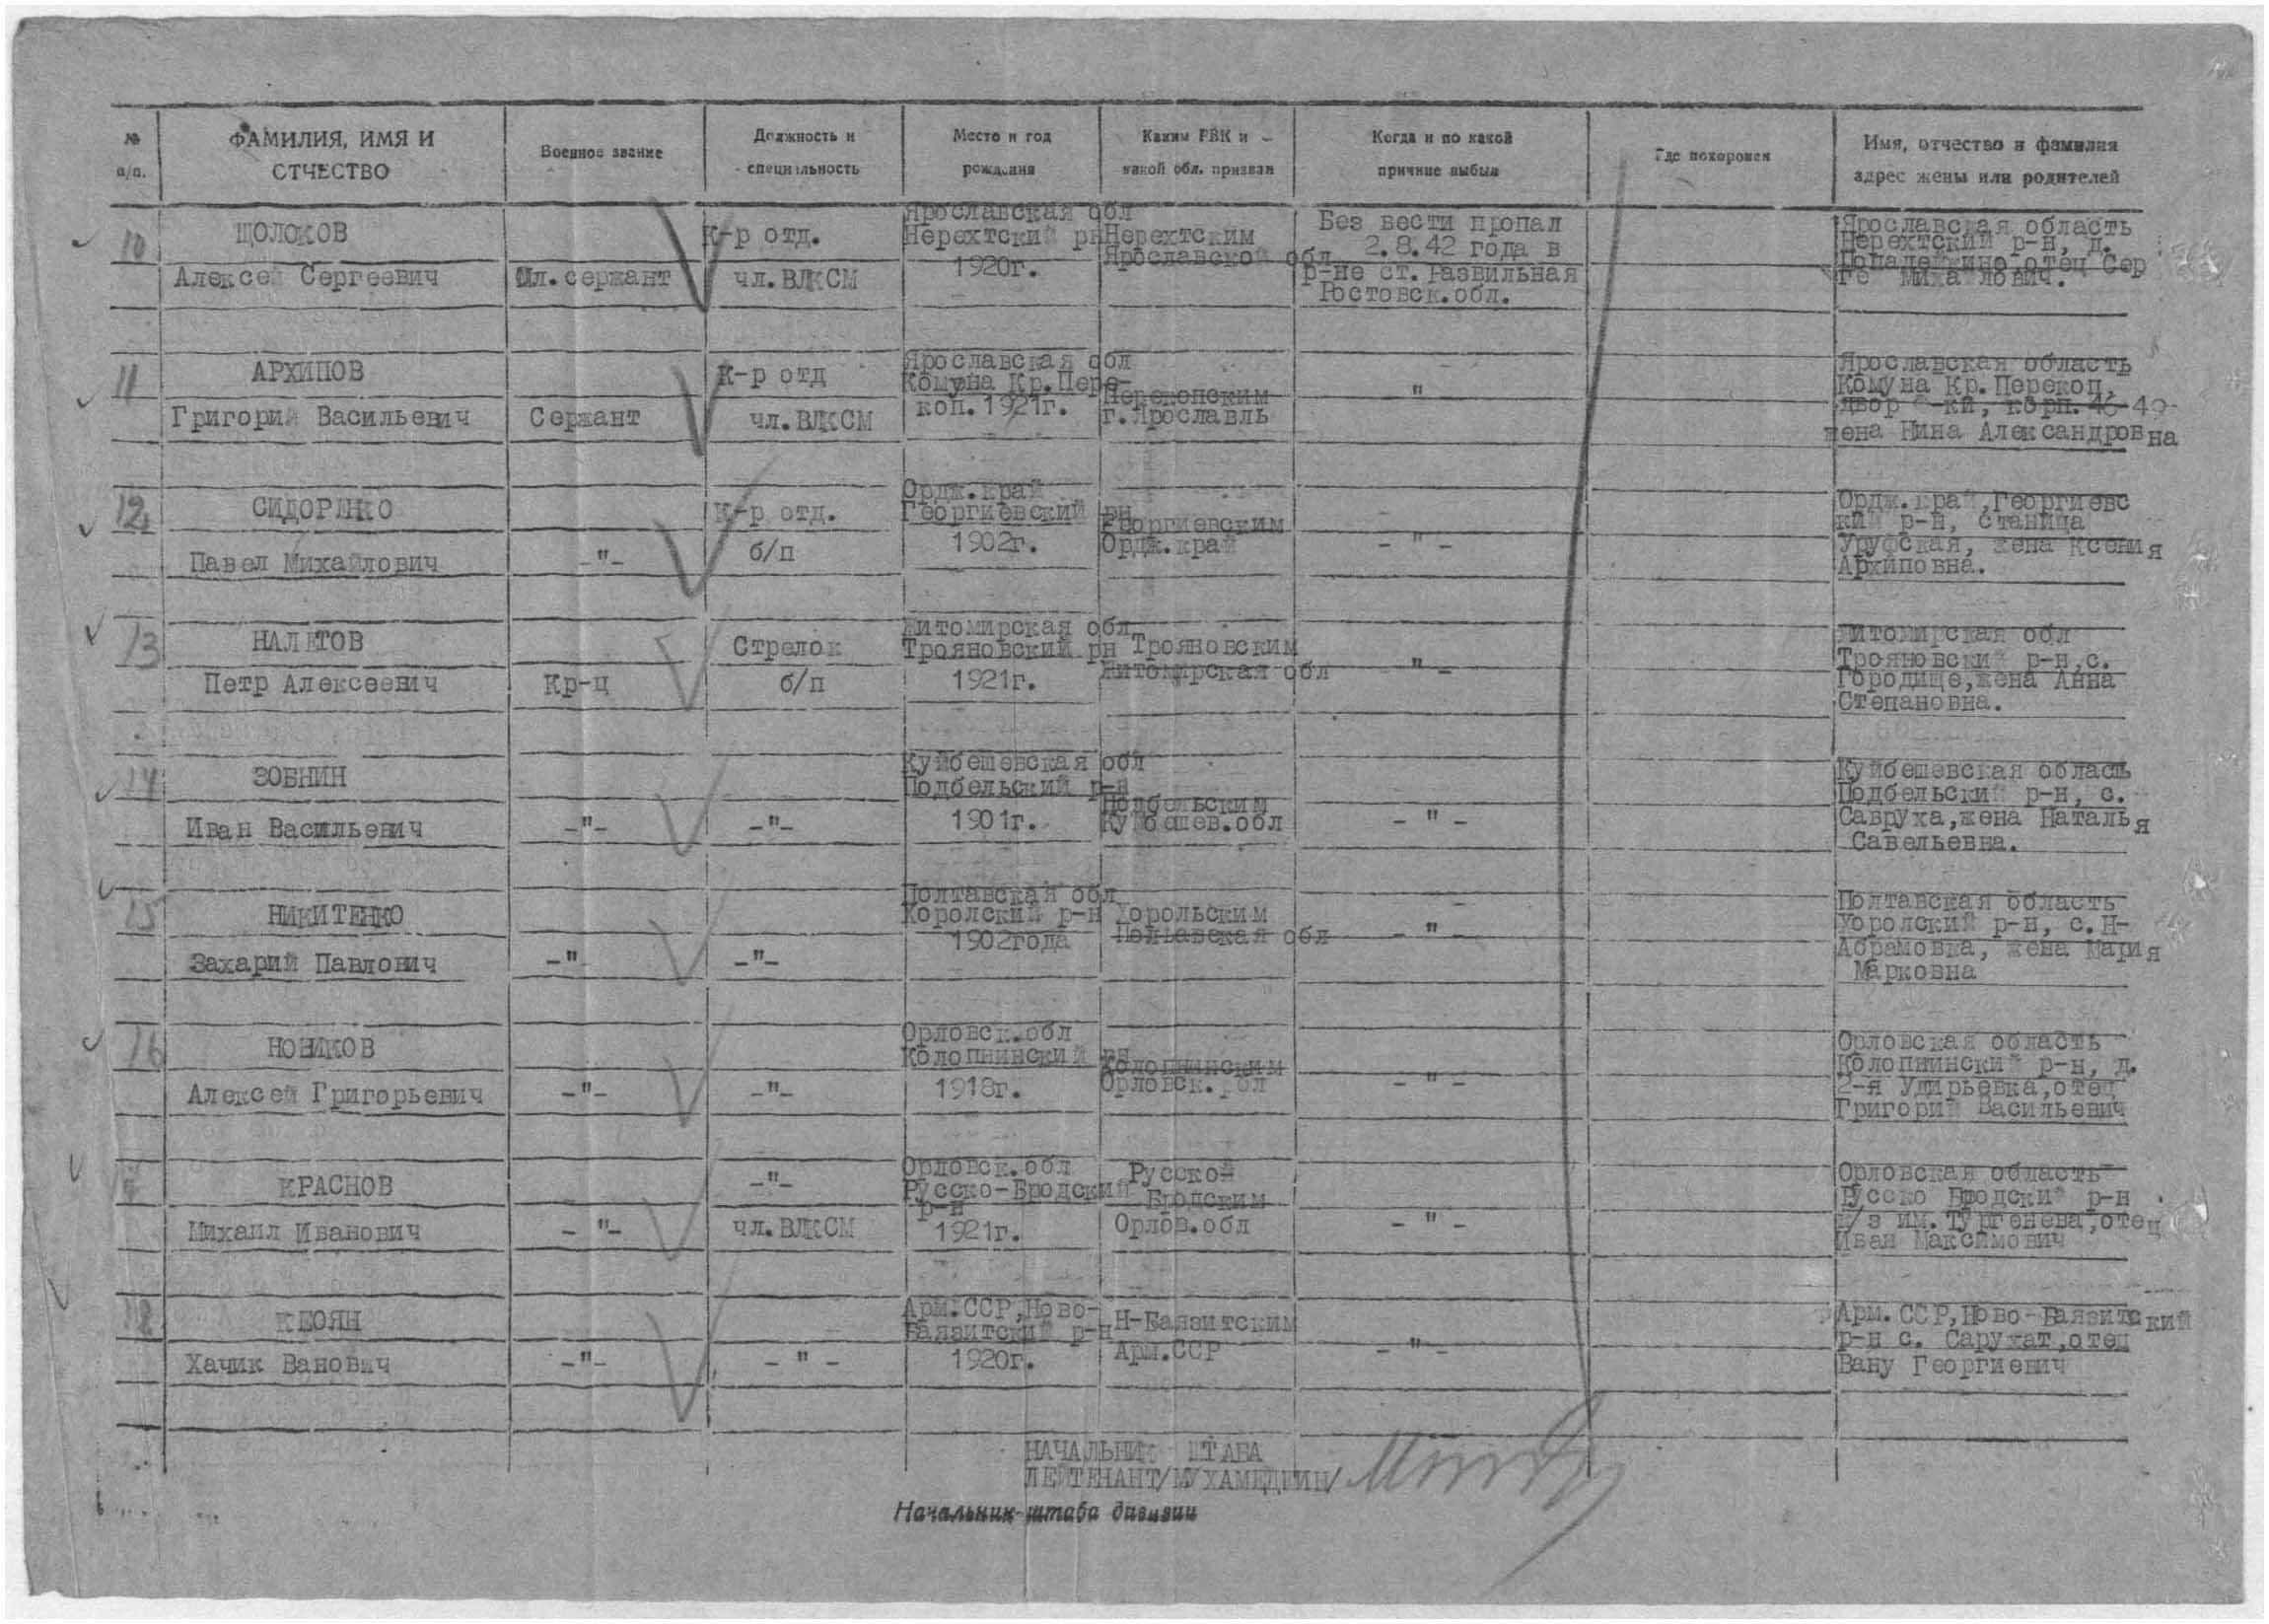 № п/п.
ФАМИЛИЯ, ИМЯ И ОТЧЕСТВО
Военное звание
Должность и специальность
Место и год рождения
Каким РВК и какой обл. призван
Когда и по какой причине выбыл
Где похоронен
Имя, отчество и фамилия адрес жены или родителей
10
ЩОЛОКОВ
Алексей Сергеевич
Мл.сержант
К-р отд.
чл.ВЛКСМ
Ярославская обл
Нерехтский рн
1920г.
Нерехтским
Ярославской обл
Без вести пропал
2.8.42 года в
р-не ст.Развильная
Ростовск.обл.
Ярославская область
Нерехтский р-н, д.
отец Сер
ге Миха лович.
11
АРХИПОВ
Григорий Васильевич
Сержант
К-р отд
чл.ВЛКСМ
Ярославская обл
Комуна Кр.Пере-
коп. 1921г.
Перекопским
г.Ярославль
"
Ярославская область
Комуна Кр.Перекоп,
двор -ки, корп. 49
жена Нина Александровна
12
СИДОРЕНКО
Павел Михайлович
-"-
К-р отд.
б/п
Ордж.край
Георгиевский рн
1902г.
Георгиевским
Ордж.край
-"-
Ордж.край,Георгиевс
кий р-н, станица
Уруфская, жена Ксения
Архиповна.
13
НАЛЕТОВ
Петр Алексеевич
Кр-ц
Стрелок
б/п
Житомирская обл
Трояновский рн
1921г.
Трояновским
Житомирская обл
-"-
Житомирская обл
Трояновский р-н,с.
Городище,жена Анна
Степановна.
14
ЗОБНИН
Иван Васильевич
-"-
-"-
Куйбешевская обл
Подбельский р-н
1901г.
Подбельским
Куйбешев.обл
-"-
Куйбешевская область
Подбельский р-н, с.
Савруха,жена Наталья
Савельевна.
15
НИКИТЕНКО
Захарий Павлович
-"-
-"-
Полтавская обл
Хоролский р-н
1902года
Хорольским
Полтавская обл
-"-
Полтавская область
Хоролский р-н, с.Н-
Абрамовка, жена Мария
Марковна
16
НОВИКОВ
Алексей Григорьевич
-"-
-"-
Орловск.обл
Колопнинский рн
1918г.
Колопнинским
Орловск. обл
-"-
Орловская область
Колопнинский р-н, д.
2-я отец
Григорий Васильевич
17
КРАСНОВ
Михаил Иванович
-"-
-"-
чл.ВЛКСМ
Орловск.обл
Русско-Бродский
р-н
1921г.
Русской
Бродским
Орлов.обл
-"-
Орловская область
Русско Бродский р-н
им.Тургенева,отец
Иван Максимович
18
КЕОЯН
Хачик Ванович
-"-
-"-
Арм.ССР,Ново-
Баязитский р-н
1920г.
Н-Баязитским
Арм.ССР
-"-
Арм.ССР,Ново-Баязитский
р-н с. Сарухат,отец
Вану Георгиевич
НАЧАЛЬНИК ШТАБА
ЛЕЙТЕНАНТ/МУХАМЕДШИН/
Начальник штаба дивизии